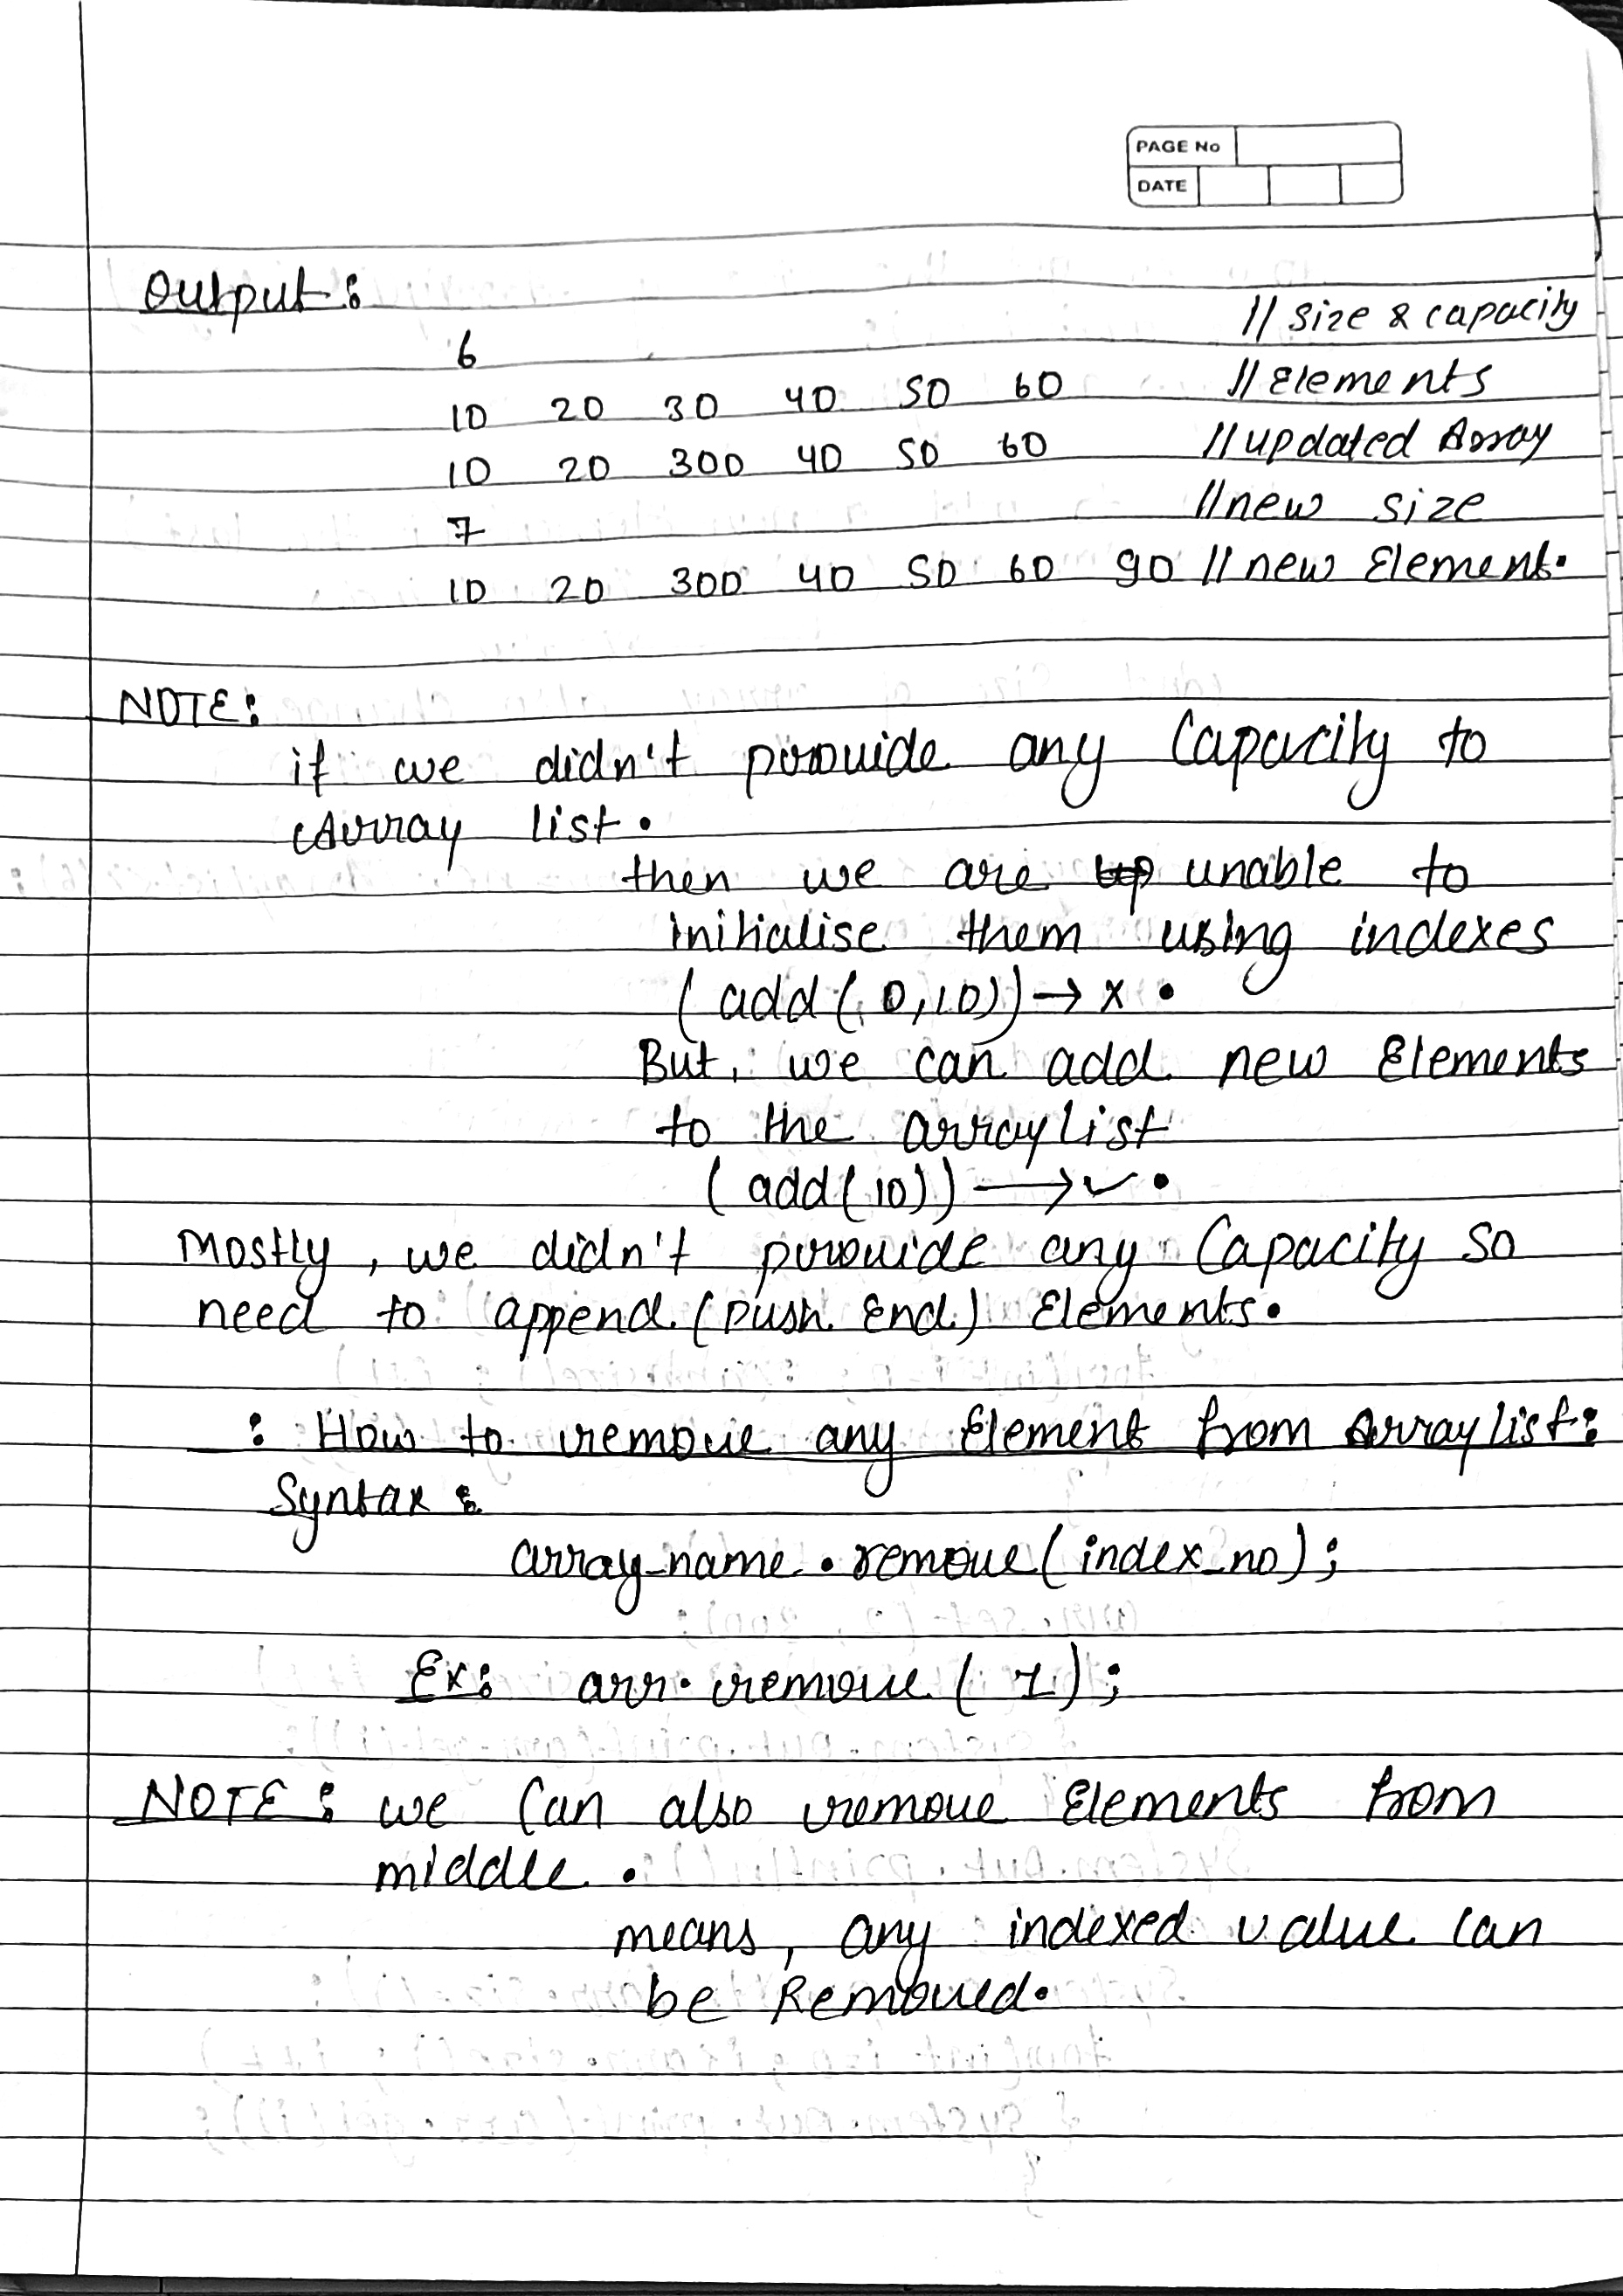 PAGE No
DATE
Output:
6 // Size & capacity
10 20 30 40 50 60 // Elements
10 20 300 40 50 60 // updated Array
7 // new size
10 20 300 40 50 60 90 // new Element.
NOTE:
if we didn't provide any Capacity to
Array list.
then we are unable to
initialise them using indexes
(add(0,10)) → x .
But, we can add new Elements
to the arraylist
(add(10)) → ✓ .
Mostly, we didn't provide any Capacity so
need to append (push End) Elements.
: How to remove any Element from Arraylist:
Syntax:
array_name.remove(index_no);
Ex: arr.remove(1);
NOTE: we Can also remove Elements from
middle.
means, any indexed value Can
be Removed.